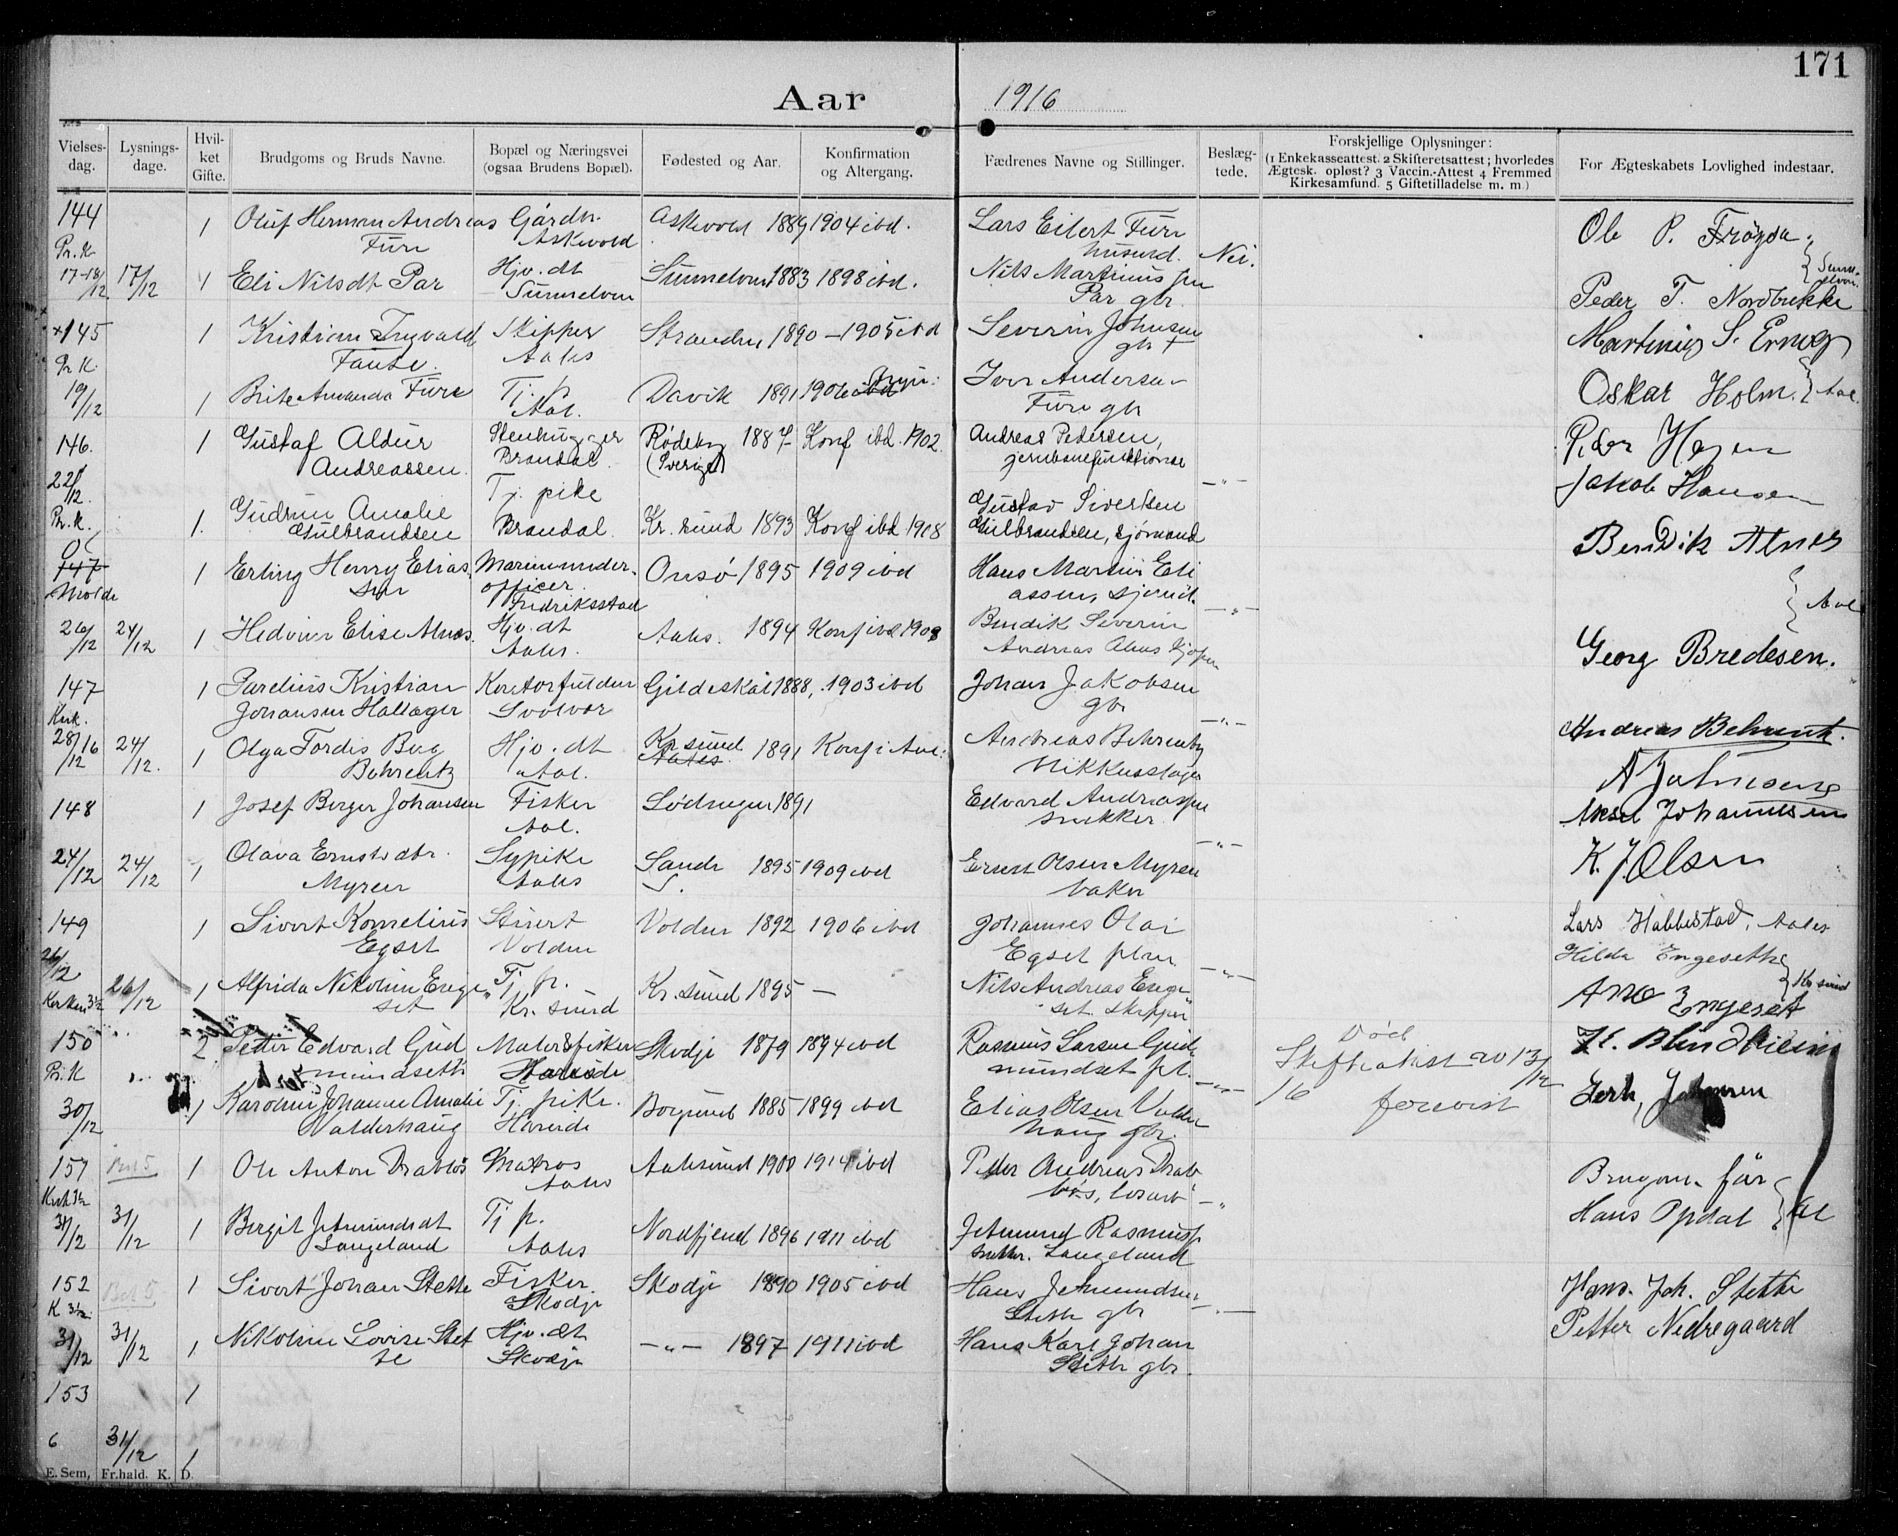 171
Aar 1916
Vielses-dag.
Lysnings-dage.
Hvil-ket Gifte.
Brudgoms og Bruds Navne.
Bopæl og Næringsvei (ogsaa Brudens Bopæl).
Fødested og Aar.
Konfirmation og Altergang.
Fædrenes Navne og Stillinger.
Beslæg-tede.
Forskjellige Oplysninger: (1 Enkekasseattest. 2 Skifteretsattest; hvorledes Ægtesk. opløst? 3 Vaccin.-Attest 4 Fremmed Kirkesamfund. 5 Giftetilladelse m. m.)
For Ægteskabets Lovlighed indestaar.
144 1 Oluf Herman Andreas Gårdbr. Askevold 1889 1904 ibd. Lars Eilert Fure Ole P. Frøysa
Pr. K Fure Askevold husmd. Nei.
17-18/12 17/12 1 Eli Nilsdt Par Hjv. dt Sunnelven 1883 1898 ibd. Nils Martinus
Sunnelven Par gbr. Peder T. Nordbukke
×145 1 Kristian Ingvald Skipper Stranden 1890 - 1905 ibd Severin Johnsen Martinus S.
Pr K Aales gbr †
19/12 1 Brite Amanda Fure Tj. p Davik 1891 1906 Iver Andersen Oskar Holm. Aal.
Aal. Fure gbr
146. 1 Gustaf Aldur Stenhugger Rødeby 1887 Konf ibd. 1902 Andreas Pedersen,
Andreassen. Brandal. (Sverige) jernbanefunktionær
22/12. Tj. pike Jakob Hansen
Pr. K. 1. Gudrun Amalie Brandal. Kr. sund 1893 Konf ibd 1908 Gustav Sivertsen
Gulbrandsen Gulbrandsen, sjømand
147 1 Erling Henry Elias. Marineunder- Onsø 1895 1909 ibd Hans Marius Eli Bendik Alnes
Molde sen officer assen, sjømd. Aal
Fredriksstad
26/12 24/12 1 Hedvien Elise Alnes. Hjv. dt Aales. 1894 Konf ibd 1908 Bendik Severin Georg Bredesen.
Aales. Andreas Alnes
147 1 Parelius Kristian Kontorfuldm Gildeskål 1888, 1903 ibd Johan Jakobsen
Kirk. Johansen Hallager Svolvær gbr
28/12 16 24/12. 1 Olga Tordis Hjv. dt Kr sund 1891 Konf i Aal. Andreas Behrentz Andreas Behrentz.
Behrentz Aal. Aales. Blikkenslager
148 1 Josef Berger Johansen Fisker Lødingen 1891 Edvard Andreassen Aksel Johannesen
Aal. snekker.
24/12 24/12 1 Olava Ernstsdtr. Sypike Sande 1895 1909 ibd Ernst Olsen Myren K. J. Olsen
Myren Aales S. baker
149 1 Sivert Kornelius Stuert Volden 1892 1906 ibd Johannes Olai Lars Habbestad, Aales
Egset Volden Egset plsm. Hilda Engeseth
26/12 26/12 1 Alfrida Nikoline Enge Tj. p. Kr. sund 1895 — Nils Andreas Enge Kr sund
Kirken 3½ set Kr. sund set. skipper Engeset
150 2 Petter Edvard Gud Skodje 1879 1894 ibd Rasmus Larsen Gud Død H. Blindheim
Pr. K mundseth Hareide mundset pl. Skifteattest av 13/12
30/12 1 Karoline Johanne Amalie Tj. pike. Borgund 1885 1899 ibd Elias Olsen Valder 16 forevist
Valderhaug Hareide haug gbr.
151 Bet 5 1 Ole Anton Drabløs Matros Aalesund 1900 1914 ibd Petter Andreas Drab
Kirk 3½ Aales løs, losarb
31/12 31/12 1 Bergit Jetmundsdt Tj p. Nordfjord 1896 1911 ibd Jetmund Rasmuss Hans Opdal
Langeland Aales snekker. Langeland
152 Bet 5 1 Sivert Johan Stette Fisker Skodje 1890 1905 ibd Hans Jetmundsen Hans. Joh. Stette
K 3½ Skodje Stette gbr Petter Nedregaard
31/12 31/12 1 Nikoline Lovise Stet Hjv. dt —„— 1897 1911 ibd Hans Karl Johan
te Skodje Stette gbr.
153 1
6 31/12 1
E. Sem, Fr.hald. K. D.